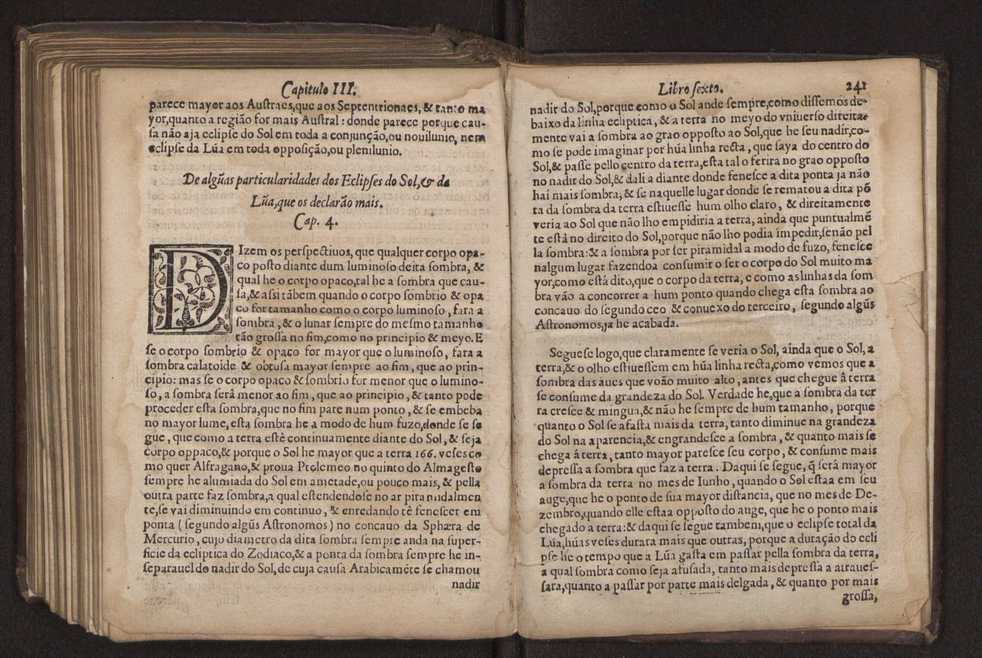 Capitulo III.
parece mayor aos Austraes,que aos Septentrionaes, & tanto ma
yor,quanto a região for mais Austral : donde parece porque cau-
sa não aja eclipse do Sol em toda a conjunção,ou nouilunio, nem
eclipse da Lũa em toda opposição,ou plenilunio.
De algũas particularidades dos Eclipses do Sol,& da
Lũa,que os declarão mais.
Cap. 4.
DIzem os perspectiuos, que qualquer corpo opa-
co posto diante dum luminoso deita sombra, &
qual he o corpo opaco,tal he a sombra que cau-
sa,& assi tãbem quando o corpo sombrio & opa
co for tamanho como o corpo luminoso , fara a
sombra , & o lunar sempre do mesmo tamanho
tão grossa no fim,como no principio & meyo. E
se o corpo sombrio & opaco for mayor que o luminoso, fara a
sombra calatoide & obtusa mayor sempre ao fim , que ao prin-
cipio: mas se o corpo opaco & sombrio for menor que o lumino-
so, a sombra será menor ao fim , que ao principio , & tanto pode
proceder esta sombra,que no fim pare num ponto , & se embeba
no mayor lume, esta sombra he a modo de hum fuzo,donde se se
gue , que como a terra estê continuamente diante do Sol, & seja
corpo oppaco,& porque o Sol he mayor que a terra 166. veses co
mo quer Alfragano,& proua Ptolemeo no quinto do Almagesto
sempre he alumiada do Sol em ametade,ou pouco mais, & pella
outra parte faz sombra,a qual estendendose no ar pira midalmen
te,se vai diminuindo em continuo , & enredando tê fenescer em
ponta ( segundo algũs Astronomos ) no concauo da Sphæra de
Mercurio , cujo diametro da dita sombra sempre anda na super-
ficie da ecliptica do Zodiaco,& a ponta da sombra sempre he in-
separauel do nadir do Sol, de cuja causa Arabicamẽte se chamou
nadir
Libro sexto.
241
nadir do Sol,porque como o Sol ande sempre,como dissemos de-
baixo da linha ecliptica , & a terra no meyo do vniuerso direita-
mente vai a sombra ao grao opposto ao Sol,que he seu nadir,co-
mo se pode imaginar por hũa linha recta , que saya do centro do
Sol,& passe pello centro da terra,esta tal o ferira no grao opposto
no nadir do Sol,& dali a diante donde fenesce a dita ponta ja não
hai mais sombra; & se naquelle lugar donde se rematou a dita põ
ta da sombra da terra estuesse hum olho claro , & direitamente
veria ao Sol que não lho empidiria a terra, ainda que puntualmẽ
te està no direito do Sol,porque não lho podia impedir,senão pel
la sombra: & a sombra por ser piramidal a modo de fuzo, fenesce
nalgum lugar fazendoa consumir o ser o corpo do Sol muito ma
yor,como està dito,que o corpo da terra, e como as linhas da som
bra vão a concorrer a hum ponto quando chega esta sombra ao
concauo do segundo ceo & conuexo do terceiro, segundo algũs
Astronomos,ja he acabada.
Segue se logo,que claramente se veria o Sol, ainda que o Sol, a
terra,& o olho estiuessem em hũa linha recta,como vemos que a
sombra das aues que voão muito alto , antes que chegue â terra
se consume da grandeza do Sol. Verdade he,que a sombra da ter
ra cresce & mingua,& não he sempre de hum tamanho, porque
quanto o Sol se afasta mais da terra, tanto diminue na grandeza
do Sol na aparencia,& engrandesce a sombra , & quanto mais se
chega â terra , tanto mayor paresce seu corpo , & consume mais
depressa a sombra que faz a terra . Daqui se segue, q̃ será mayor
a sombra da terra no mes de Iunho , quando o Sol estaa em seu
auge,que he o ponto de sua mayor distancia, que no mes de De-
zembro,quando elle estaa opposto do auge, que he o ponto mais
chegado a terra:& daqui se segue tambem,que o eclipse total da
Lũa,hũas veses durara mais que outras, porque a duração do ecli
pse he o tempo que a Lũa gasta em passar pella sombra da terra,
a qual sombra como seja afusada, tanto mais depressa a atraues-
sara,quanto a passar por parte mais delgada , & quanto por mais
grossa,